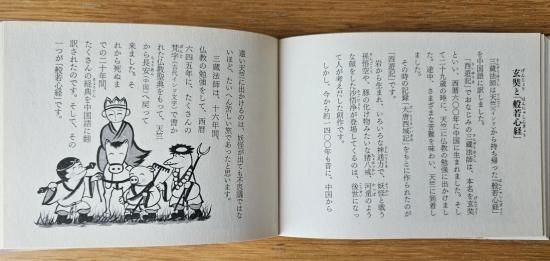 玄奘と『般若心経』
三蔵法師は天竺(インド)から持ち帰った『般若心経』
を中国語に訳しました。
『西遊記』でおなじみの三蔵法師は、本名を玄奘
といい、西暦六〇〇年に中国に生まれました。そし
て二十九歳の時に、天竺に仏教の勉強に出かけまし
た。途中、さまざまな苦難を味わい、天竺に到着し
その時の記録『大唐西域記』をもとに作られたのが
『西遊記』です。
岩から生まれ、いろいろな神通力で、妖怪と戦う
孫悟空や、豚の化け物みたいな猪八戒、河童のよう
な顔をした沙悟浄が登場してくるのは、後世になっ
て人が考えだした創作です。
しかし、今から約一四〇〇年も昔に、中国から
遠い天竺に出かけるのは、妖怪が出ても不思議ではな
いほど、たいへん苦しい旅であったと思います。
三蔵法師は、十六年間、
仏教の勉強をして、西暦
六四五年に、たくさんの
梵字(古代インド文字)で書か
れた仏教聖典をもって、天竺
から長安(中国)へ戻って
来ました。そ
れから死ぬま
での二十年間、
たくさんの経典を中国語に翻
訳されたのです。そして、その
一つが『般若心経』です。